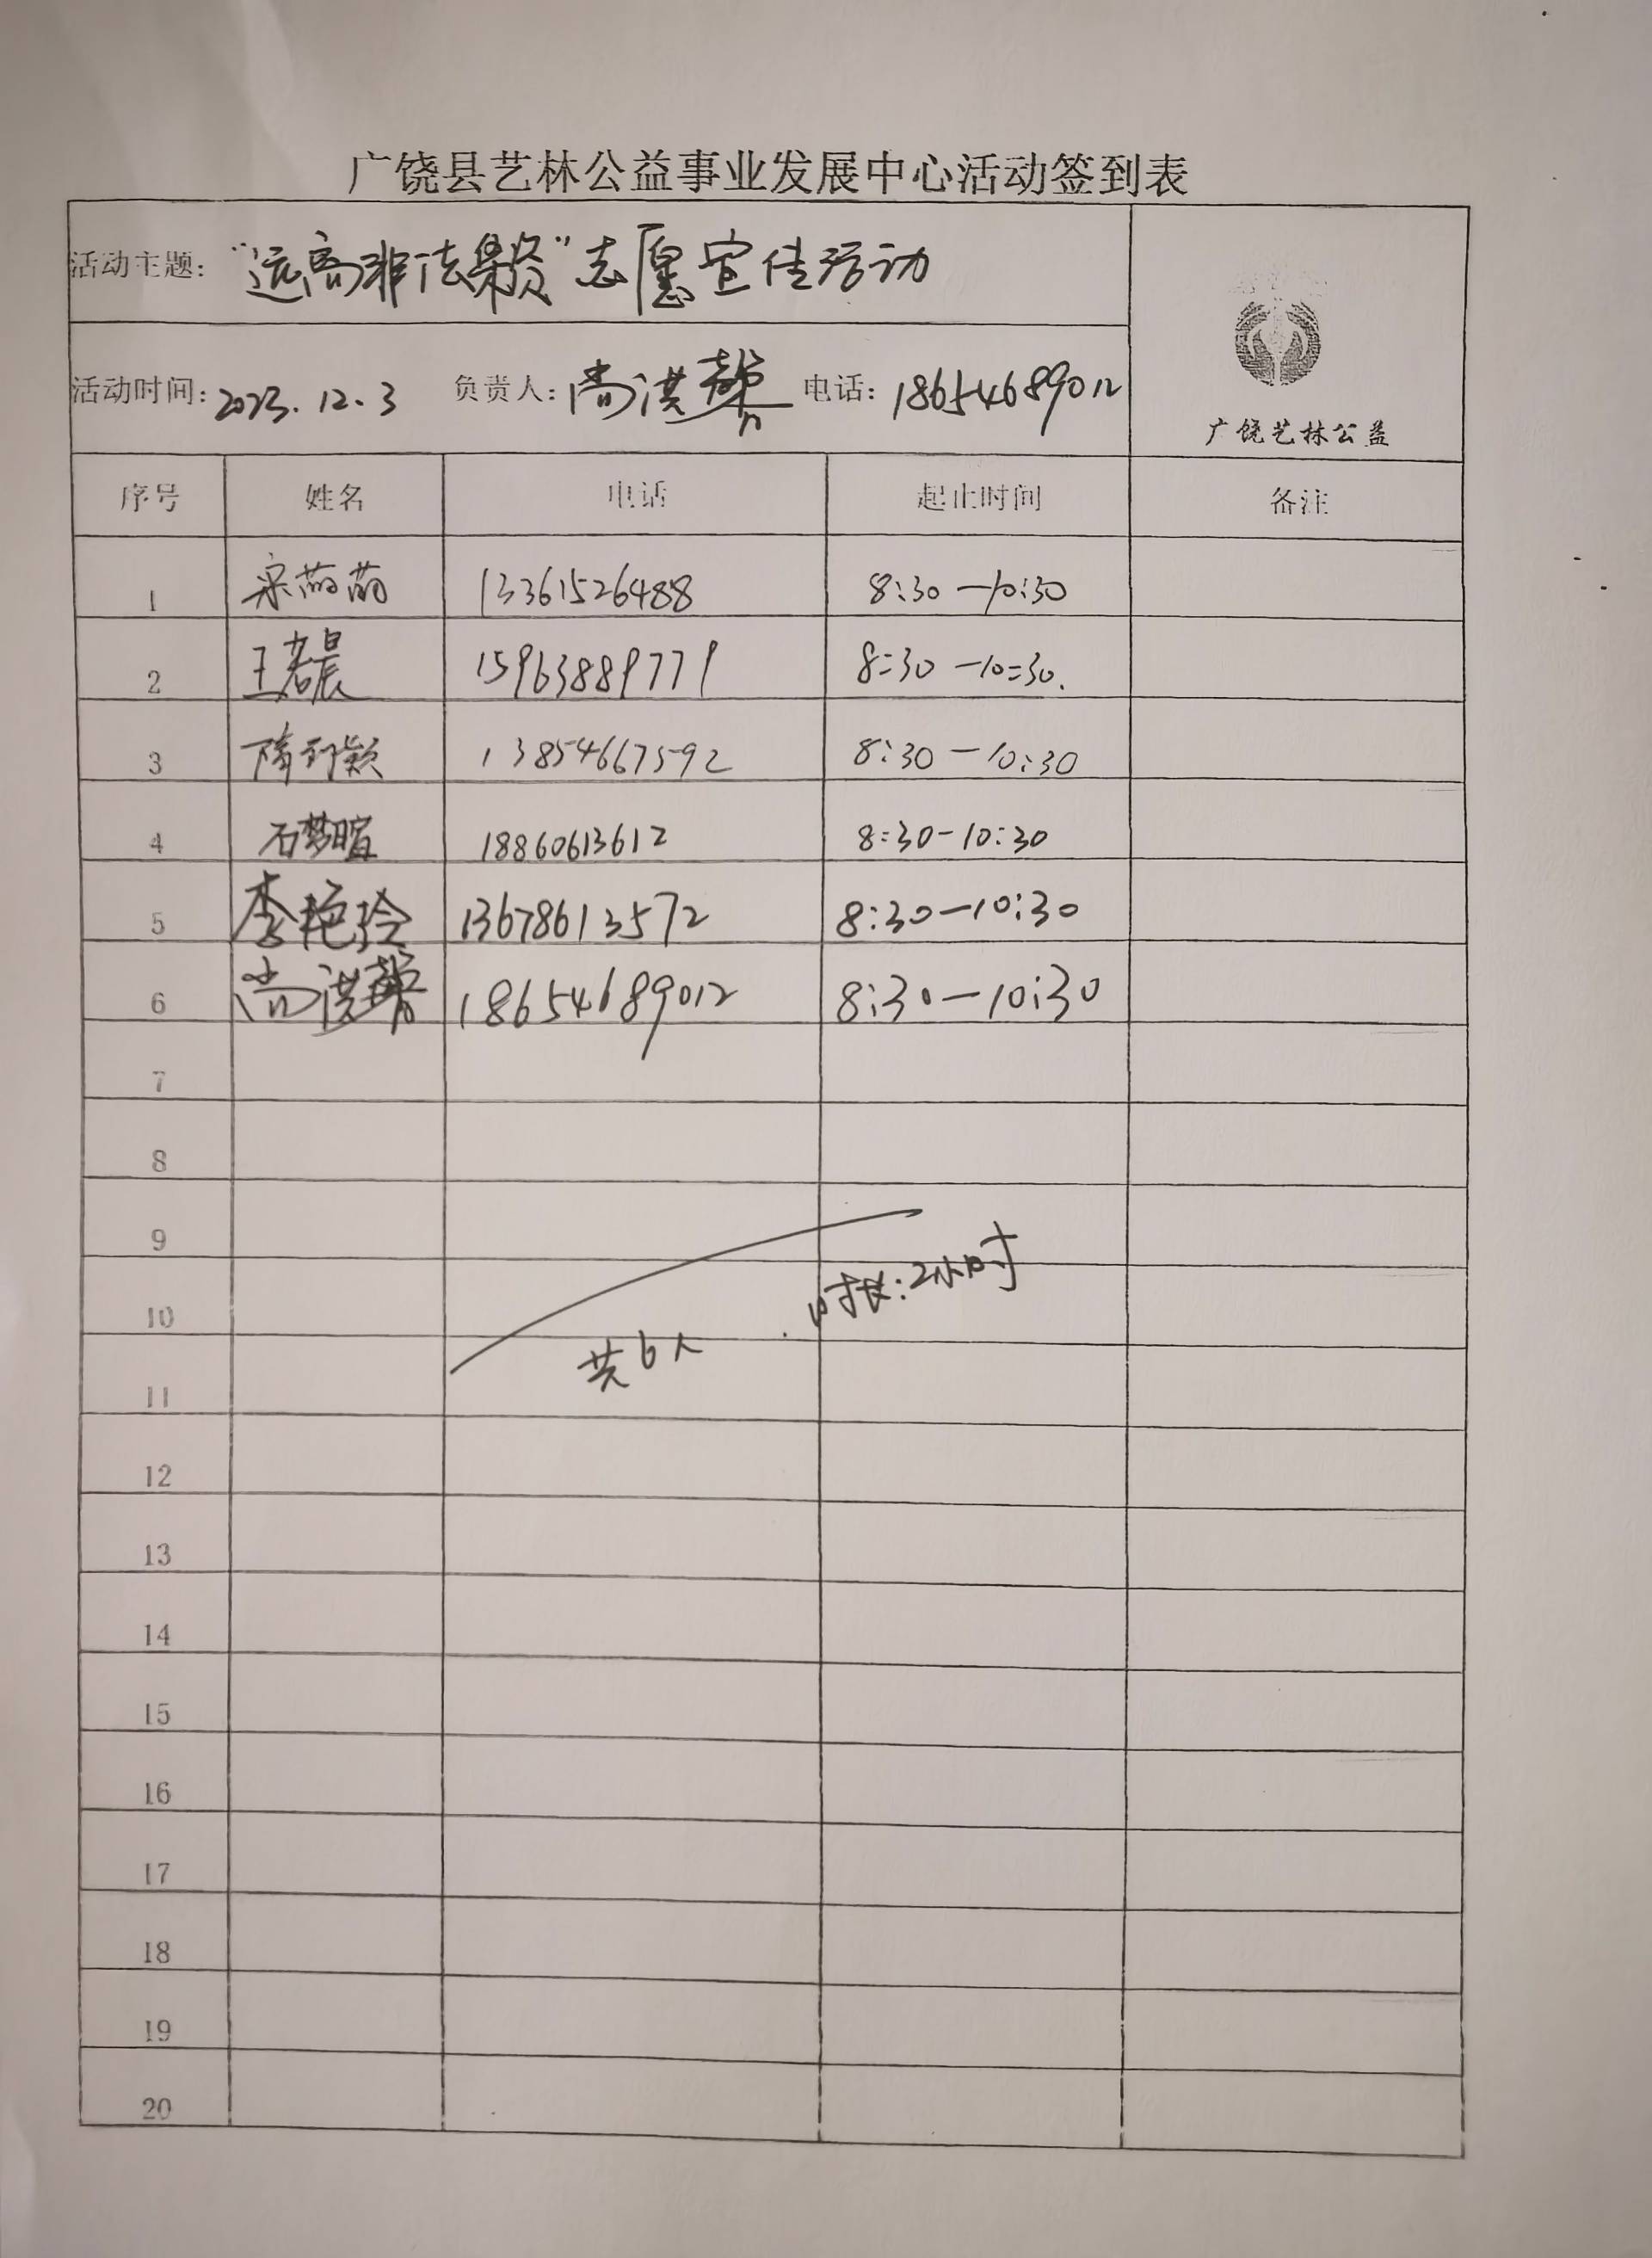 广饶县艺林公益事业发展中心活动签到表
活动主题：“远离非法集资”志愿宣传活动
活动时间：2023.12.3 负责人：尚洪馨 电话：18654689012
广饶艺林公益
序号 姓名 电话 起止时间 备注
1 宋萌萌 13361526488 8:30—10:30
2 王若晨 15963889779 8:30—10:30.
3 隋 颖 13854667592 8:30—10:30
4 石梦暄 18860613612 8:30-10:30
5 李艳玲 13678613572 8:30—10:30
6 尚洪馨 18654689012 8:30—10:30
7
8
9
10 时长：2小时
11 共6人
12
13
14
15
16
17
18
19
20